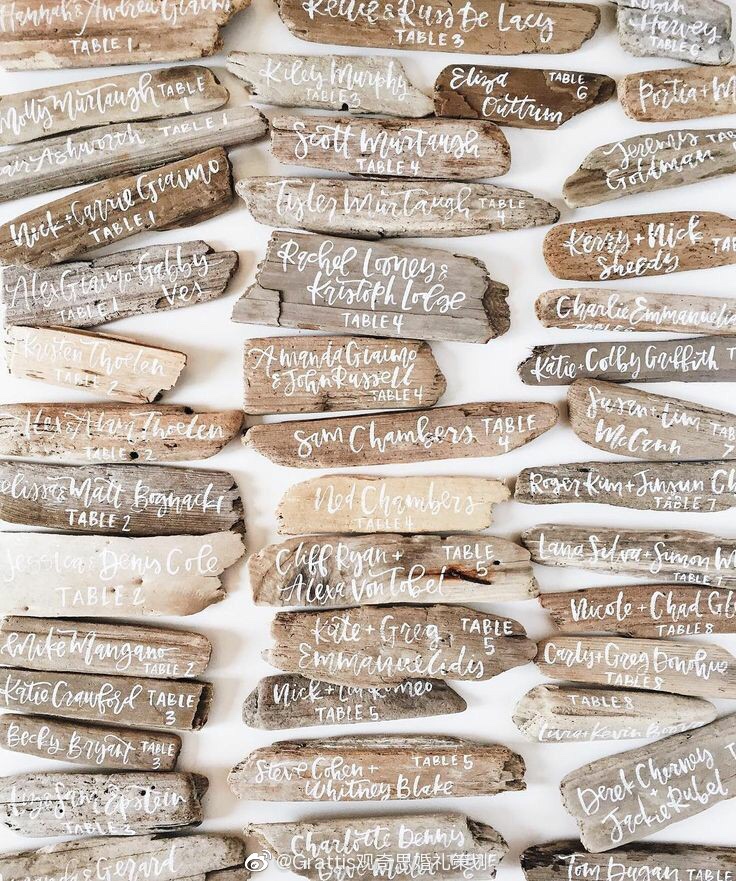 Hannah & Andrew Giaimo
TABLE 1
Molly Murtaugh TABLE 1
Ashworth TABLE 1
Nick + Carrie Giaimo
TABLE 1
Alex Giaimo Gabby
TABLE 1 Ves
Kristen Thoelen
TABLE 2
Alex & Adam Thoelen
TABLE 2
Matt Bognacki
TABLE 2
Jessica & Denis Cole
TABLE 2
Mike Mangano
TABLE 2
Katie Crawford TABLE
3
Becky Bryant TABLE
3
Sam Epstein
TABLE 3
Gerard
& Russ De Lacy
TABLE 3
Kiley Murphy
TABLE 3
Eliza TABLE
Outtrim 6
Scott Murtaugh
TABLE 4
Tyler Murtaugh TABLE
4
Rachel Looney &
Kristoph Lodge
TABLE 4
Amanda Giaimo
& John Russell
TABLE 4
Sam Chambers TABLE
4
Ned Chambers
TABLE 4
Cliff Ryan + TABLE
Alexa Von Tobel 5
Kate + Greg TABLE
Emmanuelidis 5
Nick + Romeo
TABLE 5
Steve Cohen + TABLE 5
Whitney Blake
Charlotte Dennis
Dave
@Grattis观奇思婚礼策划
Robin
Harvey
TABLE 6
Portia +
Jeremy
Goldman
Kerry + Nick
Sheedy
Charlie
Katie + Colby Griffith
Susan + Tim
McCann
7
Roger Kum + Jinsun
TABLE 7
Lana Silva + Simon
TABLE 7
Nicole + Chad
TABLE 8
Carly + Greg Donohue
TABLE 8
TABLE 8
Kevin
Derek Cherney
+
Jackie Rubel
Tom Dugan